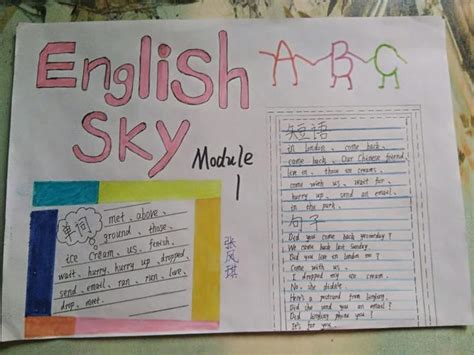 English
SKY
ABC
Module
1
单词
met、above、
ground、those、
ice cream、us、finish、
wait、hurry、hurry up、dropped、
send、email、ran、run、love、
drop、meet.
张凤琪
短语
in london、come back、
come back、Our Chinese friend、
live in、those ice creams、
come with us、wait for、
hurry up、send an email、
in the park、
句子
Did you come back yesterday?
We came back last Sunday.
Did you live in london
Come with us.
I dropped my ice cream.
No, she
Here's a postcard from Lingling.
Did she send you an email?
Did Lingling phone you?
It's for you.